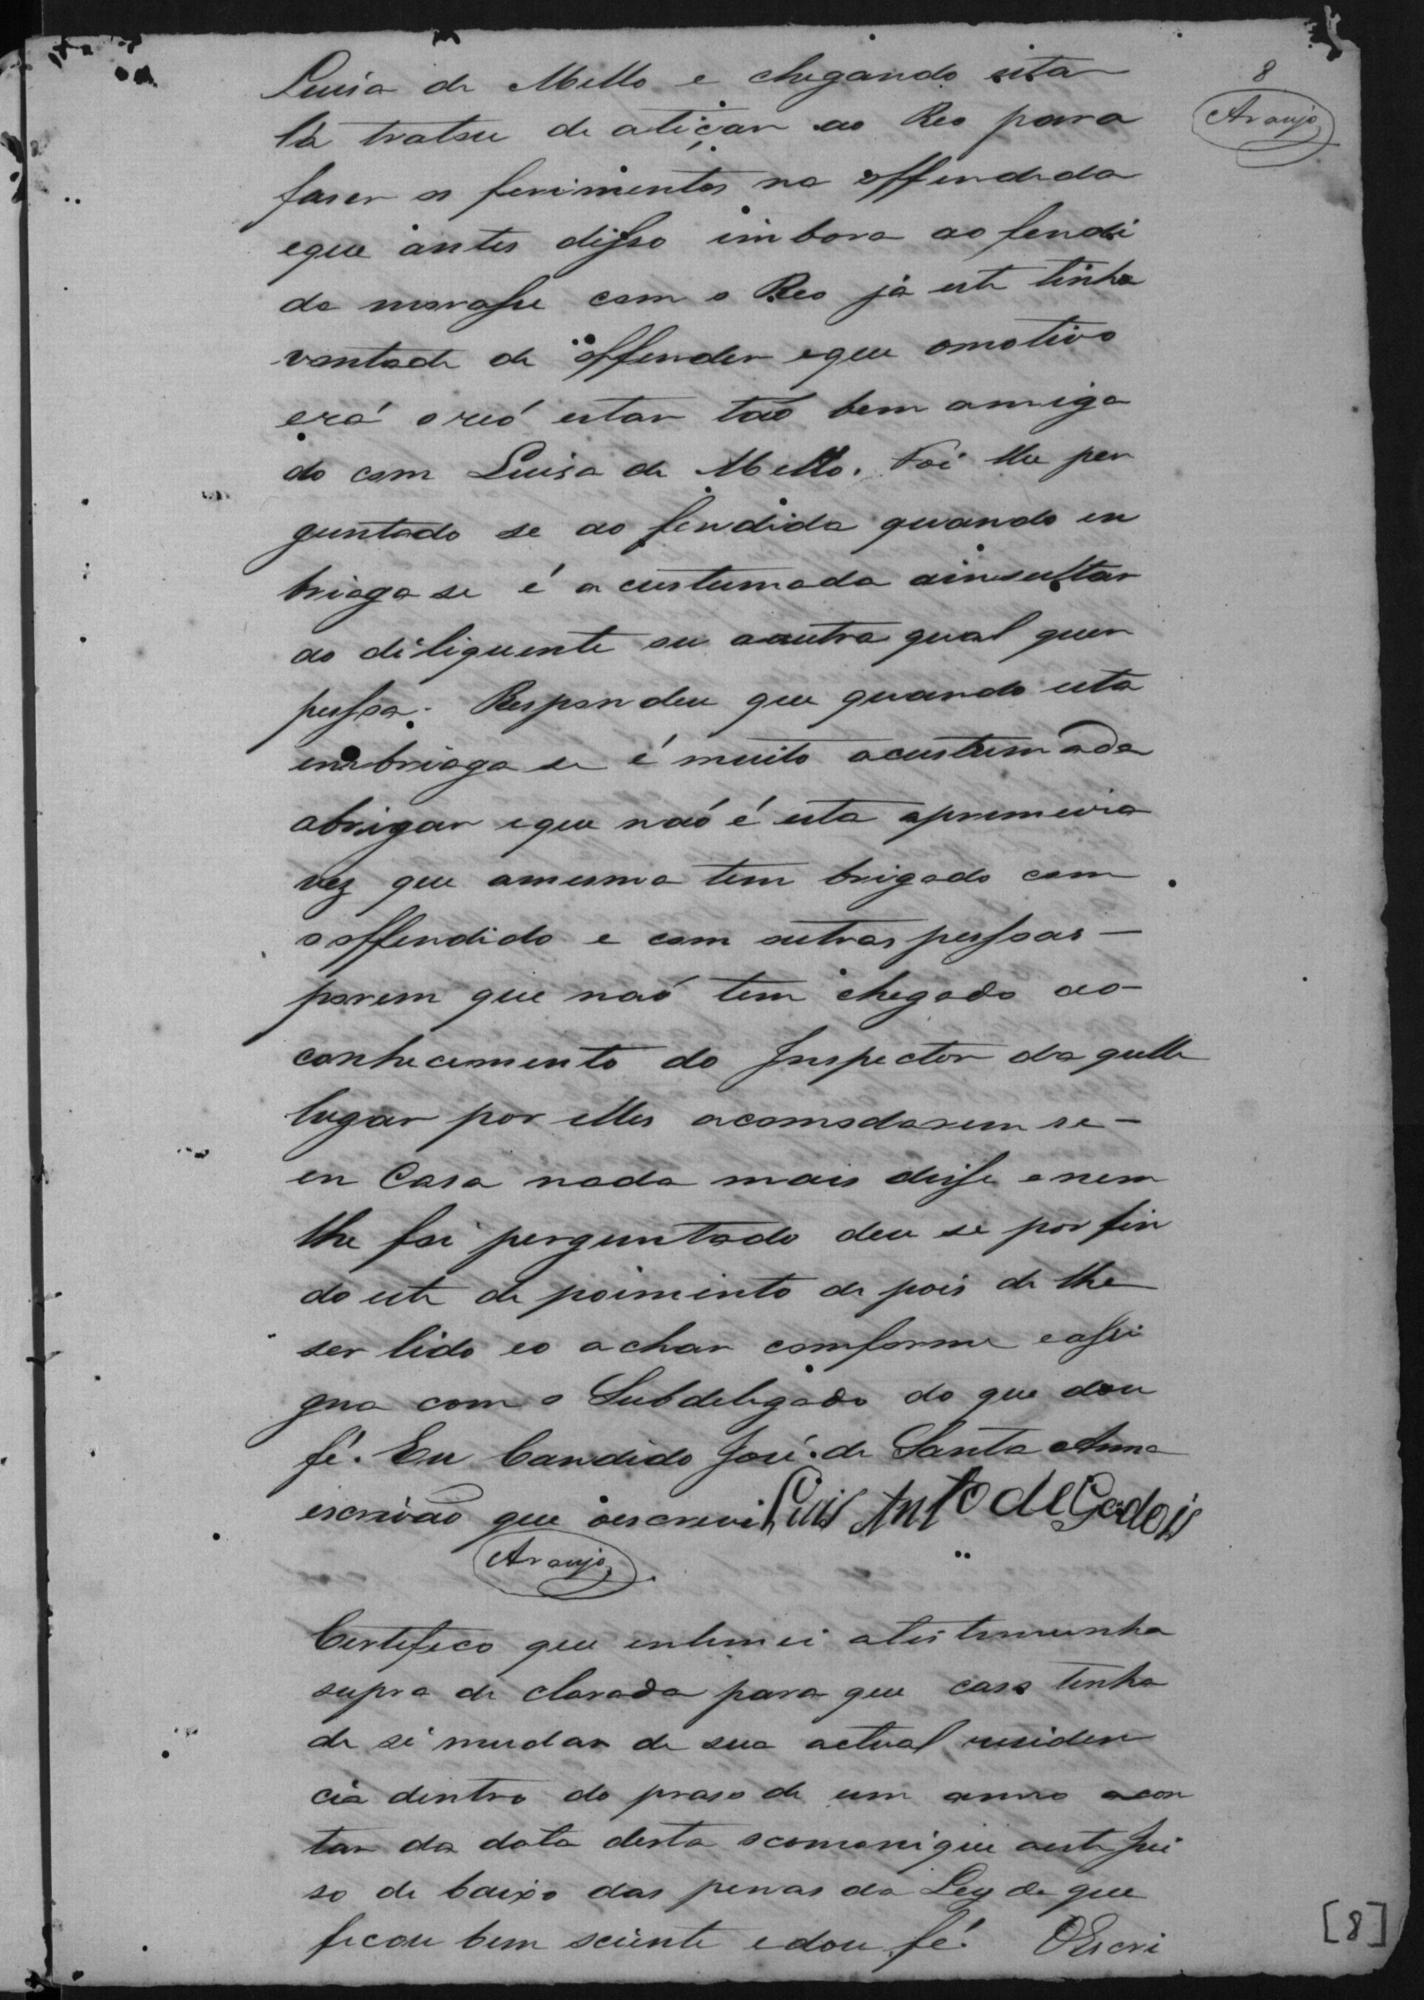 8
Araujo
Luisa de Mello e chegando esta
lá tratou de atiçar ao Reo para
faser os ferimentos na offendida
eque antes disso imbora aofendi
da morasse com o Reo já este tinha
vontade de offender eque omotivo
erá oreó estar taõ bem amiga
do com Luisa de Mello. Foi lhe per
guntado se aofendida quando en
briaga se é acustumada ainsultar
ao diliquente ou aoutra qual quer
pessoa. Respondeu que quando esta
embriaga se é muito acustumada
abrigar eque naó é esta apremeira
vez que amesma tem brigado com
ooffendido e com outras pessoas —
porem que naó tem chegado ao
conhecimento do Inspector daquelle
lugar por elles acomodarem se —
en Casa nada mais disse enem
lhe foi perguntado deu se por fin
do este de poimento de pois de lhe
ser lido eo achar comforme eassi
gna com o Subdelegado do que dou
fé. Eu Candido José de Santa Anna
escrivaõ que oescrevi Luis Antº de Godois
Araujo
Certefico que entimei atestemunha
supra de clarada para que caso tenha
de si mudar de sua actual residen
cia dentro do praso de um anno acon
tar da data desta ocomonique aeste Jui
so de baixo das penas da Ley de que
ficou bem sciente edou fé. OEscri
[8]